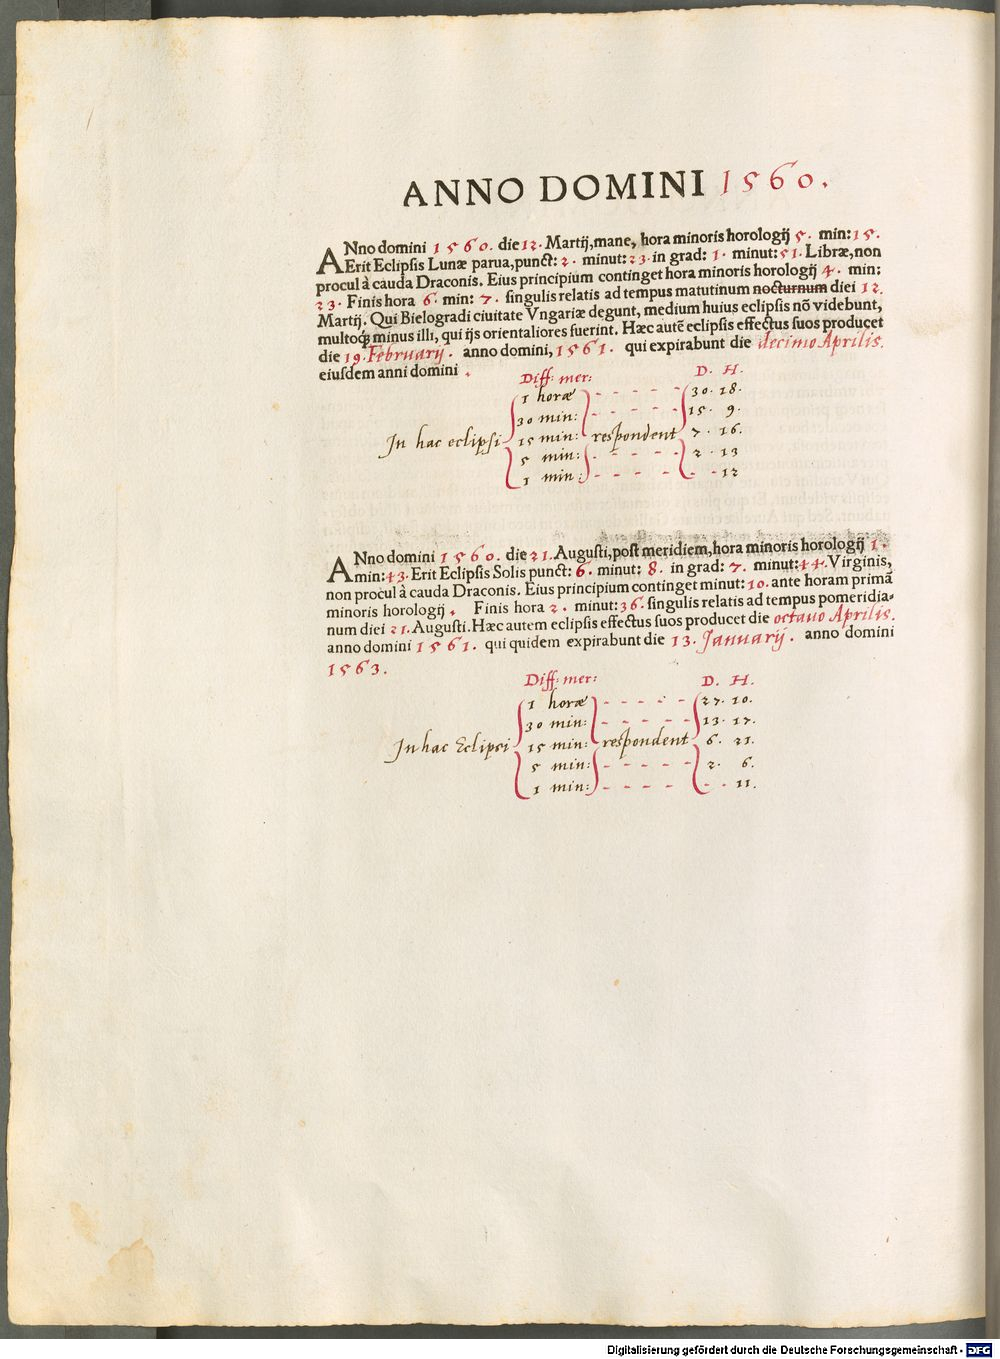 ANNO DOMINI 1560.
ANno domini 1560. die 12. Martij, mane, hora minoris horologij 5. min: 15.
Erit Eclipsis Lunæ parua, punct: 2. minut: 23. in grad: 1. minut: 51. Libræ, non
procul à cauda Draconis. Eius principium continget hora minoris horologij 4. min:
23. Finis hora 6. min: 7. singulis relatis ad tempus matutinum nocturnum diei 12.
Martij. Qui Bielogradi ciuitate Vngariæ degunt, medium huius eclipsis nō videbunt,
multoq; minus illi, qui ijs orientaliores fuerint. Hæc autē eclipsis effectus suos producet
die 19. Februarij. anno domini, 1561. qui expirabunt die decimo Aprilis.
eiusdem anni domini.
Diff: mer: D. H.
1 horæ - - - - - 30. 18.
30 min: - - - - - 15. 9.
In hac eclipsi 15 min: respondent 7. 16.
5 min: - - - - - 2. 13
1 min: - - - - - - - 12
ANno domini 1560. die 21. Augusti, post meridiem, hora minoris horologij 1.
min: 43. Erit Eclipsis Solis punct: 6. minut: 8. in grad: 7. minut: 44. Virginis,
non procul à cauda Draconis. Eius principium continget minut: 10. ante horam primā
minoris horologij. Finis hora 2. minut: 36. singulis relatis ad tempus pomeridia-
num diei 21. Augusti. Hæc autem eclipsis effectus suos producet die octauo Aprilis.
anno domini 1561. qui quidem expirabunt die 13. Januarij. anno domini
1563.
Diff: mer: D. H.
1 horæ - - - - - 27. 10.
30 min: - - - - - 13. 17.
In hac Eclipsi 15 min: respondent 6. 21.
5 min: - - - - - 2. 6.
1 min: - - - - - - - 11.
Digitalisierung gefördert durch die Deutsche Forschungsgemeinschaft - DFG